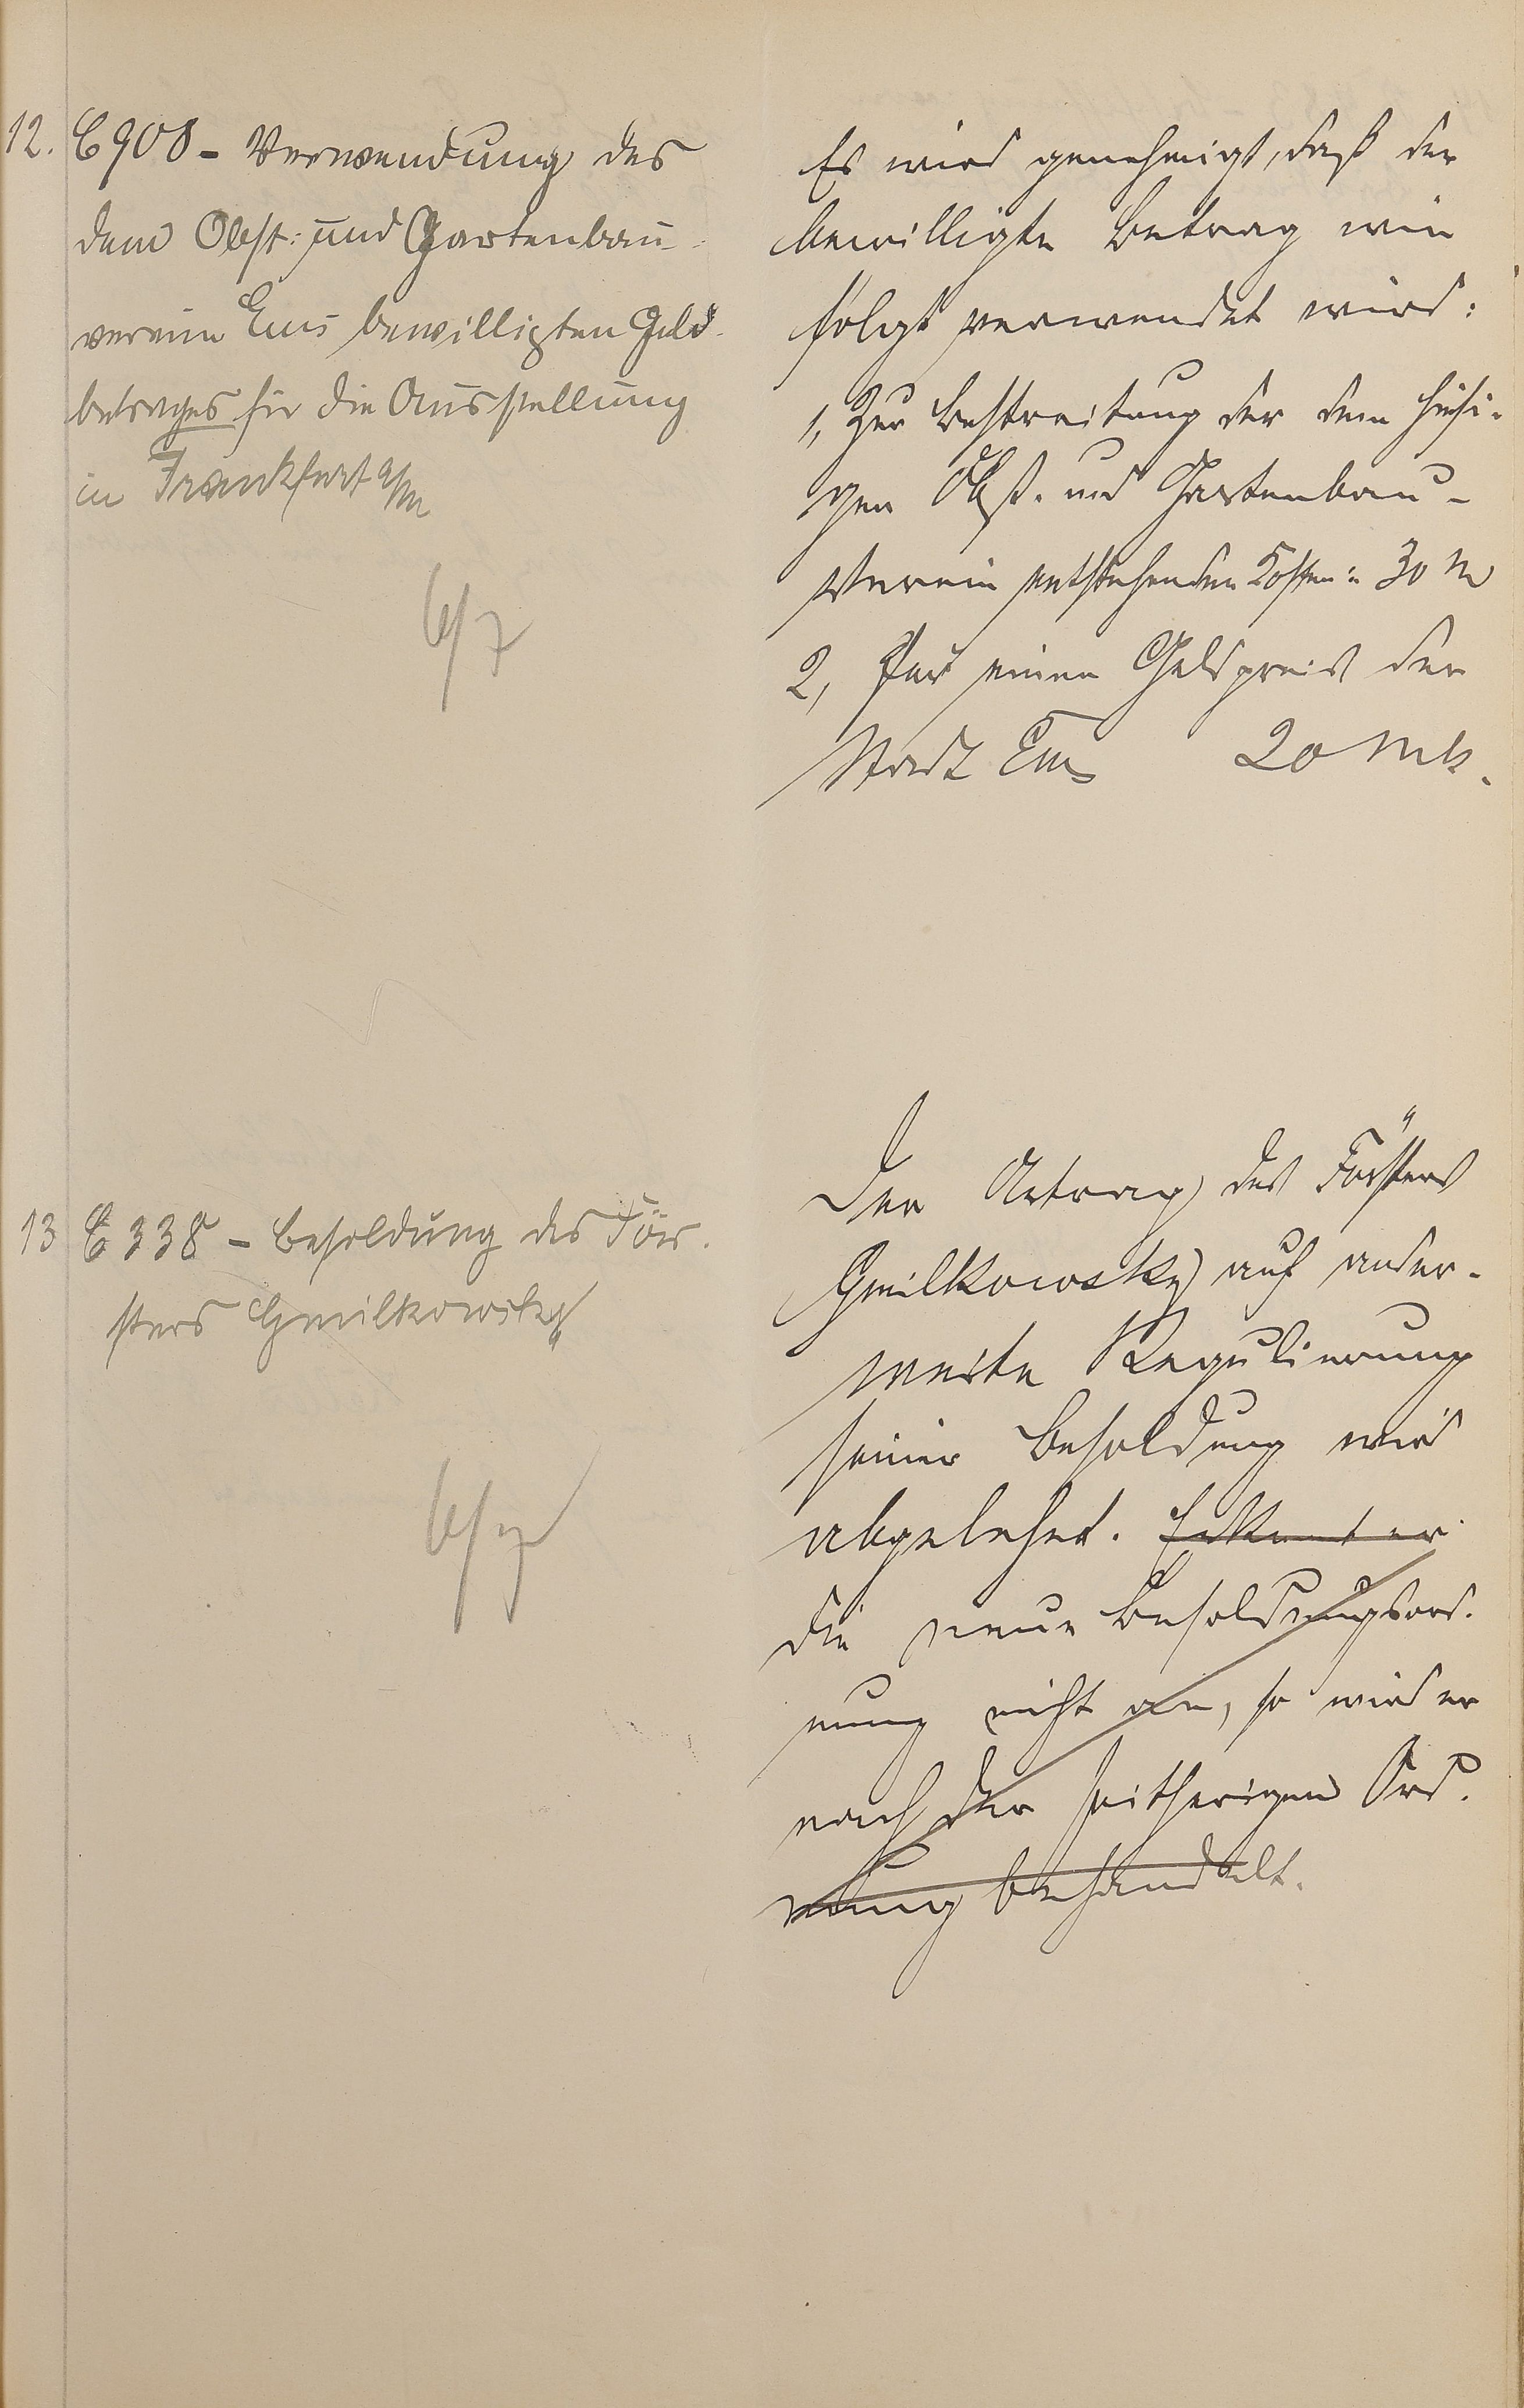 12. C 908 - Verwendung des
dem Obst- und Gartenbau-
verein Ems bewilligten Geld-
betrages für die Ausstellung
in Frankfurt a/M
Es wird genehmigt, daß der
bewilligte Betrag wie
folgt verwendet wird:
1, Zur Bestreitung der dem hiesi-
gen Obst- und Gartenbau-
Verein entstehenden Kosten: 30 M
2, Für einen Geldpreis der
Stadt Ems 20 Mk.
13 C 338 - Besoldung des För-
sters Gmilkowsky
Der Antrag des Försters
Gmilkowsky auf ander-
weite Regulierung
seiner Besoldung wird
abgelehnt. Erkennt er
die neue Besoldungsord-
nung nicht an, so wird er
nach der seitherigen Ord-
nung behandelt.